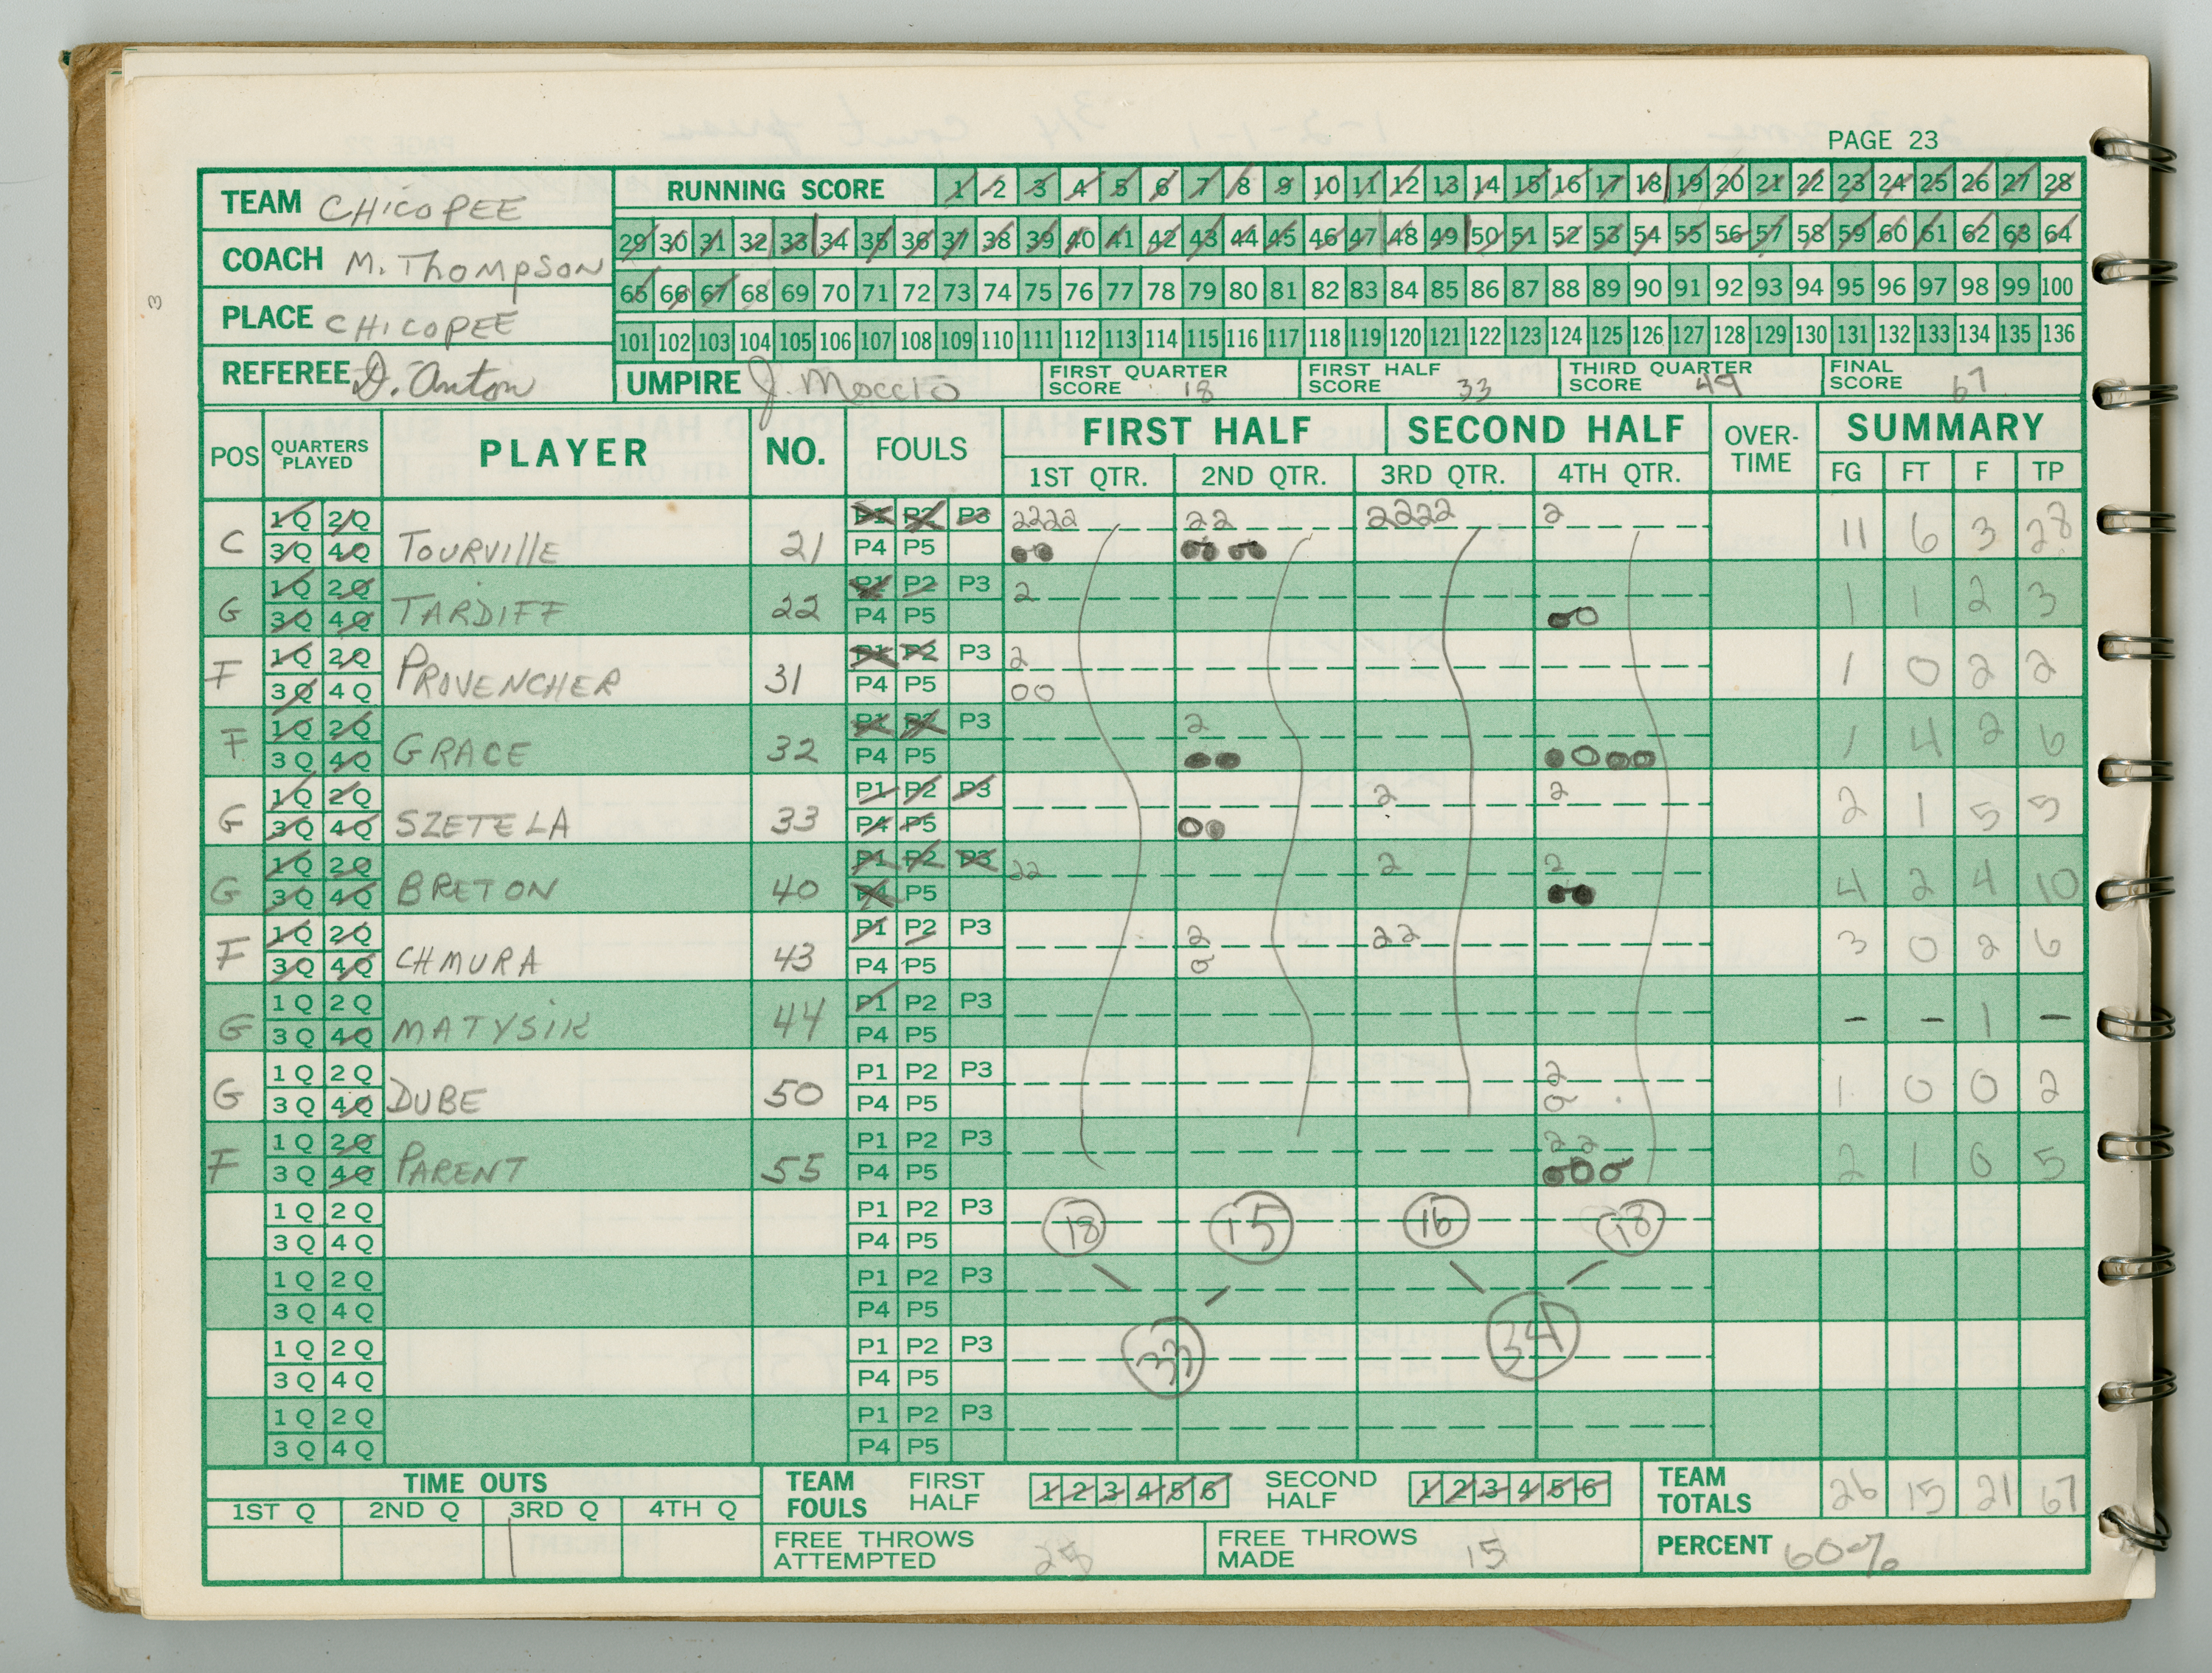 PAGE 23
TEAM CHICOPEE
COACH M. THOMPSON
PLACE CHICOPEE
REFEREE D. Anton
RUNNING SCORE 1 2 3 4 5 6 7 8 9 10 11 12 13 14 15 16 17 18 19 20 21 22 23 24 25 26 27 28
29 30 31 32 33 34 35 36 37 38 39 40 41 42 43 44 45 46 47 48 49 50 51 52 53 54 55 56 57 58 59 60 61 62 63 64
65 66 67 68 69 70 71 72 73 74 75 76 77 78 79 80 81 82 83 84 85 86 87 88 89 90 91 92 93 94 95 96 97 98 99 100
101 102 103 104 105 106 107 108 109 110 111 112 113 114 115 116 117 118 119 120 121 122 123 124 125 126 127 128 129 130 131 132 133 134 135 136
UMPIRE J. Moccio FIRST QUARTER SCORE 18 FIRST HALF SCORE 33 THIRD QUARTER SCORE 49 FINAL SCORE 67
POS QUARTERS PLAYED PLAYER NO. FOULS FIRST HALF SECOND HALF OVER-TIME SUMMARY
1ST QTR. 2ND QTR. 3RD QTR. 4TH QTR. FG FT F TP
1Q 2Q P1 P2 P3 2222 22 2222 2
C 3Q 4Q TOURVILLE 21 P4 P5 11 6 3 28
1Q 2Q P1 P2 P3 2
G 3Q 4Q TARDIFF 22 P4 P5 1 1 2 3
1Q 2Q P1 P2 P3 2
F 3Q 4Q PROVENCHER 31 P4 P5 1 0 2 2
1Q 2Q P1 P2 P3 2
F 3Q 4Q GRACE 32 P4 P5 1 4 2 6
1Q 2Q P1 P2 P3 2 2
G 3Q 4Q SZETELA 33 P4 P5 2 1 5 5
1Q 2Q P1 P2 P3 22 2 2
G 3Q 4Q BRETON 40 P4 P5 4 2 4 10
1Q 2Q P1 P2 P3 2 22
F 3Q 4Q CHMURA 43 P4 P5 3 0 2 6
1Q 2Q P1 P2 P3
G 3Q 4Q MATYSIK 44 P4 P5 - - 1 -
1Q 2Q P1 P2 P3 2
G 3Q 4Q DUBE 50 P4 P5 1 0 0 2
1Q 2Q P1 P2 P3 2 2
F 3Q 4Q PARENT 55 P4 P5 2 1 0 5
1Q 2Q P1 P2 P3 18 15 16 18
3Q 4Q P4 P5
1Q 2Q P1 P2 P3
3Q 4Q P4 P5
1Q 2Q P1 P2 P3 33 34
3Q 4Q P4 P5
1Q 2Q P1 P2 P3
3Q 4Q P4 P5
TIME OUTS TEAM FOULS FIRST HALF 1 2 3 4 5 6 SECOND HALF 1 2 3 4 5 6 TEAM TOTALS 26 15 21 67
1ST Q 2ND Q 3RD Q 4TH Q
FREE THROWS ATTEMPTED 25 FREE THROWS MADE 15 PERCENT 60%
3